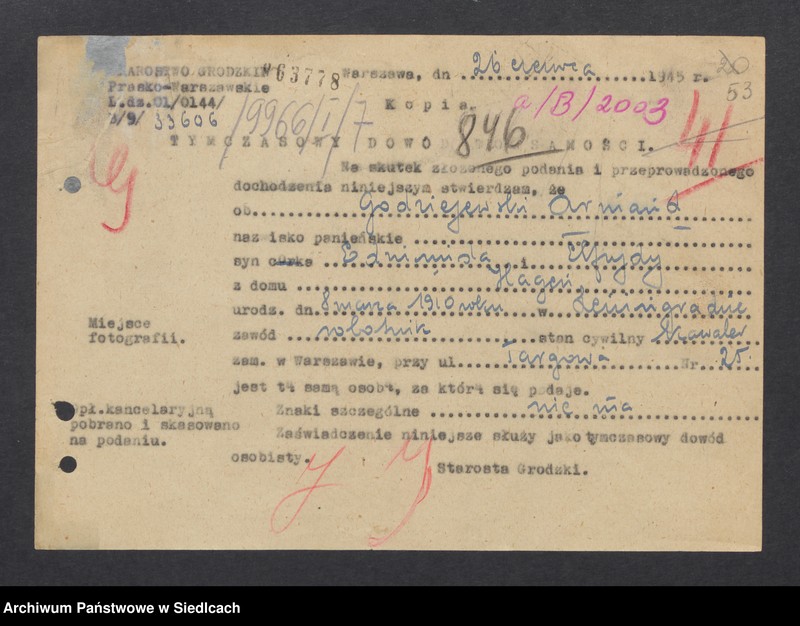 STAROSTWO GRODZKIE 063778 Warszawa, dn 26 czerwca 1945 r. 20
Prasko-Warszawskie 53
L.dz.01/0144/ Kopia. a/B/2003
/9/ 33606 /9966/I/7 846 41
TYMCZASOWY DOWÓD TOŻSAMOŚCI.
Na skutek złożonego podania i przeprowadzonego
dochodzenia niniejszym stwierdzam, że
ob. Godziejewski Armand
nazwisko panieńskie
syn córka Edmunda i Elfrydy
z domu Hagen
urodz. dn. 8 marca 1910 roku w Leningradzie
Miejsce
fotografii.
zawód robotnik stan cywilny Kawaler
zam. w Warszawie, przy ul. Targowa Nr. 25
jest tą samą osobą, za którą się podaje.
opł.kancelaryjną
pobrano i skasowano
na podaniu.
Znaki szczególne nie ma
Zaświadczenie niniejsze służy jako tymczasowy dowód
osobisty.
Starosta Grodzki.
Archiwum Państwowe w Siedlcach